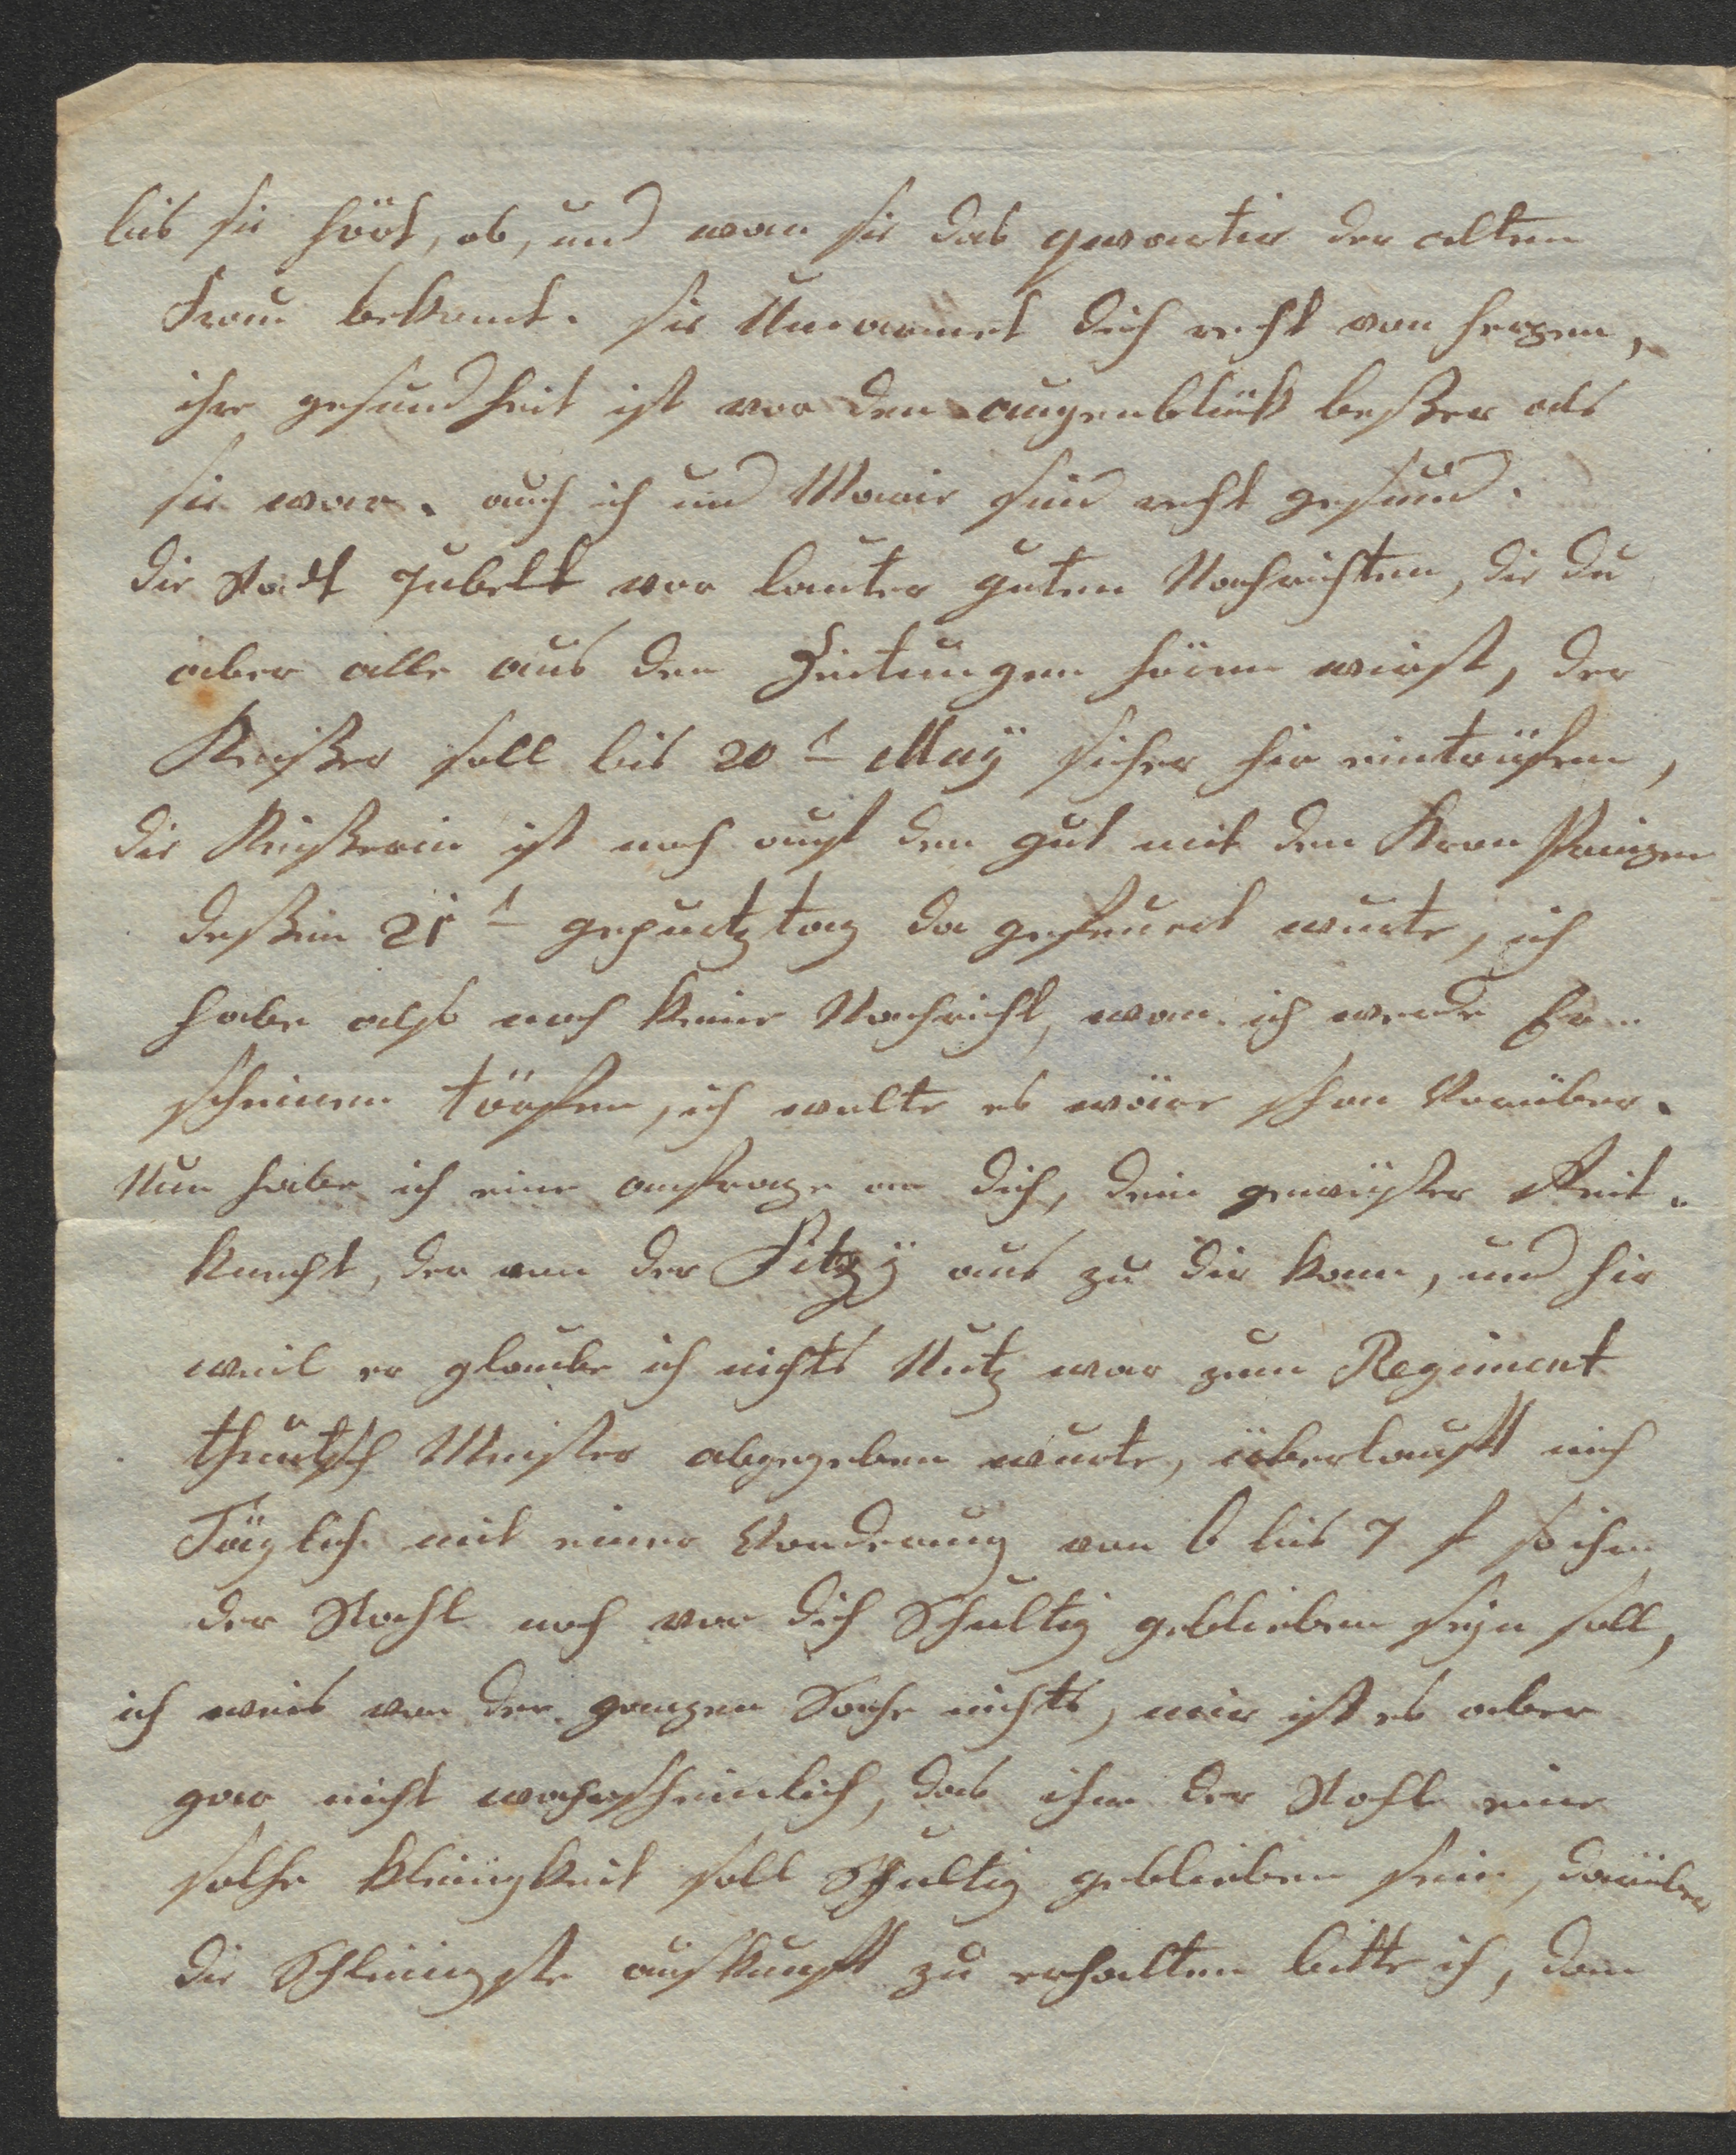 bis sie hört, ob, und wan sie das qwartir der alten
Frau bekomt. sie Umarmet dich recht von herzen,
ihre gesundheit ist vor den augenblük beßer als
sie war. auch ich und Marie sind recht gesund.
die Stadt Jubelt vor lauter guten Nachrichten, die du
aber alle aus den Zeitungen hören wirst, der
Keißer soll bis 20t May sicher hir eintrüfen,
die Keißerin ist noch auf den gut mit dem Kron Prinzen
deßen 21t gepurtztag da gefeuert wurte, ich
habe also noch keine Nachricht, wan ich werde Er
scheinen törfen, ich wolte es wäre schon Vorüber.
Nun habe ich eine anfrage an dich, dein gewister Reit
knecht, der von der Fitzy aus zu dir kam, und hir
weil er glaube ich nichts Nutz war zum Regiment
theutsch Meister abgegeben wurte, überlauft mich
Täglich mit einer Vorderung von 6 bis 7 f so ihm
der Stohl noch vor dich Schultig geblieben seyn soll,
ich weis von der ganzen Sache nichts, mir ist es aber
gar nicht wahrscheinlich, das ihm der Stohl eine
solche kleinigkeit soll Schultig geblieben sein, darüber
die Schleinigste auskunft zu erhalten bitte ich, dan